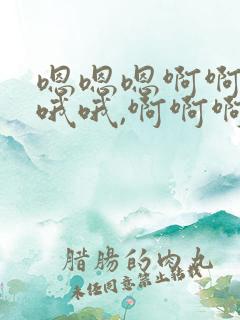 嗯嗯嗯啊啊
哦哦,啊啊啊
腊肠的肉丸
未经同意禁止转载